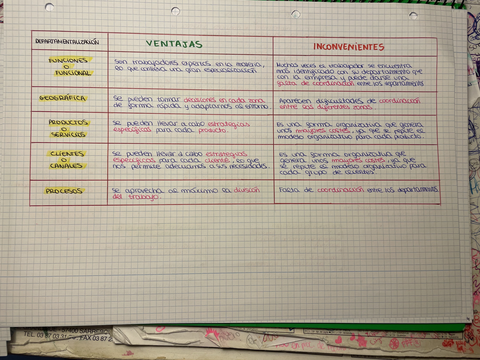 DEPARTAMENTALIZACIÓN
VENTAJAS
INCONVENIENTES
FUNCIONES
O
FUNCIONAL
Son trabajadores expertos en la materia,
lo que conlleva una gran especialización
Muchas veces el trabajador se encuentra
más identificado con su departamento que
con la empresa y puede darse una
falta de coordinación entre los departamentos
GEOGRÁFICA
Se pueden tomar decisiones en cada zona
de forma rápida y adaptarnos al entorno.
Aparecen dificultades de coordinación
entre las diferentes zonas.
PRODUCTOS
O
SERVICIOS
Se pueden llevar a cabo estrategias
específicas para cada producto.
Es una forma organizativa que genera
unos mayores costes, ya que se repite el
modelo organizativo para cada producto
CLIENTES
O
CANALES
Se pueden llevar a cabo estrategias
específicas para cada cliente, lo que
nos permite adecuarnos a sus necesidades
Es una forma organizativa que
genera unos mayores costes, ya que
se repite el modelo organizativo para
cada grupo de clientes
PROCESOS
Se aprovecha al máximo la división
del trabajo.
Falta de coordinación entre los departaments